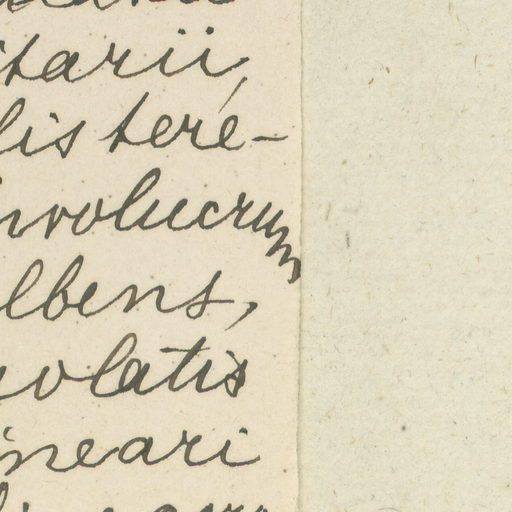 itarii,
lis tere-
involucrum
lbens,
eolatis
ineari